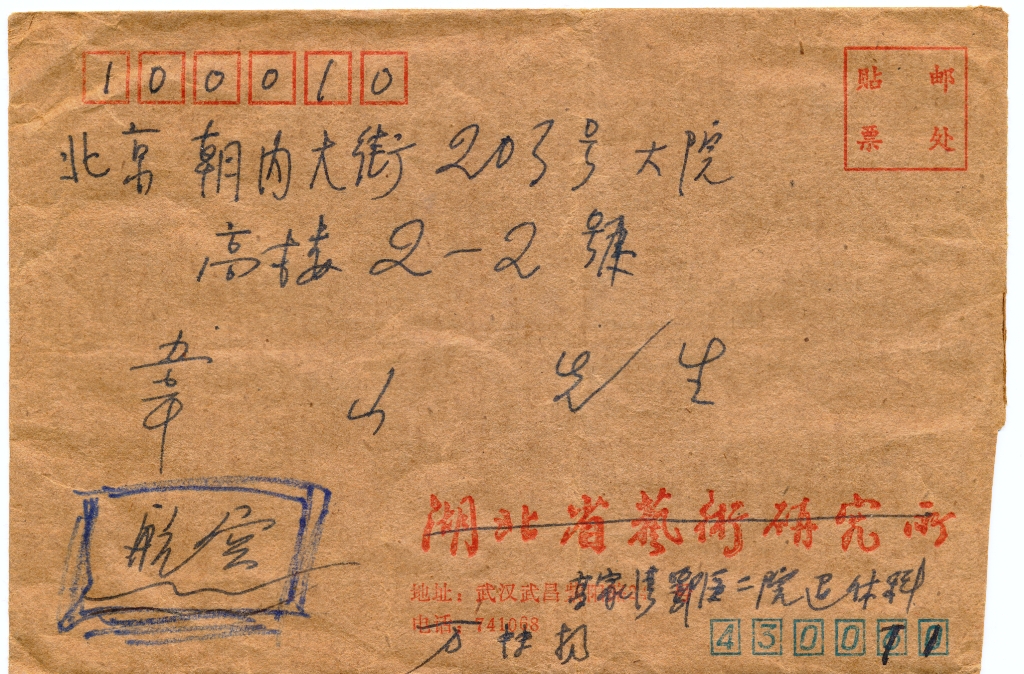 100010
贴 邮
票 处
北京 朝内大街 203号 大院
高楼 2-2 號
韋 山 先 生
航空
湖北省藝術研究所
地址：武汉武昌
电话：741068
二院退休科
万
430071